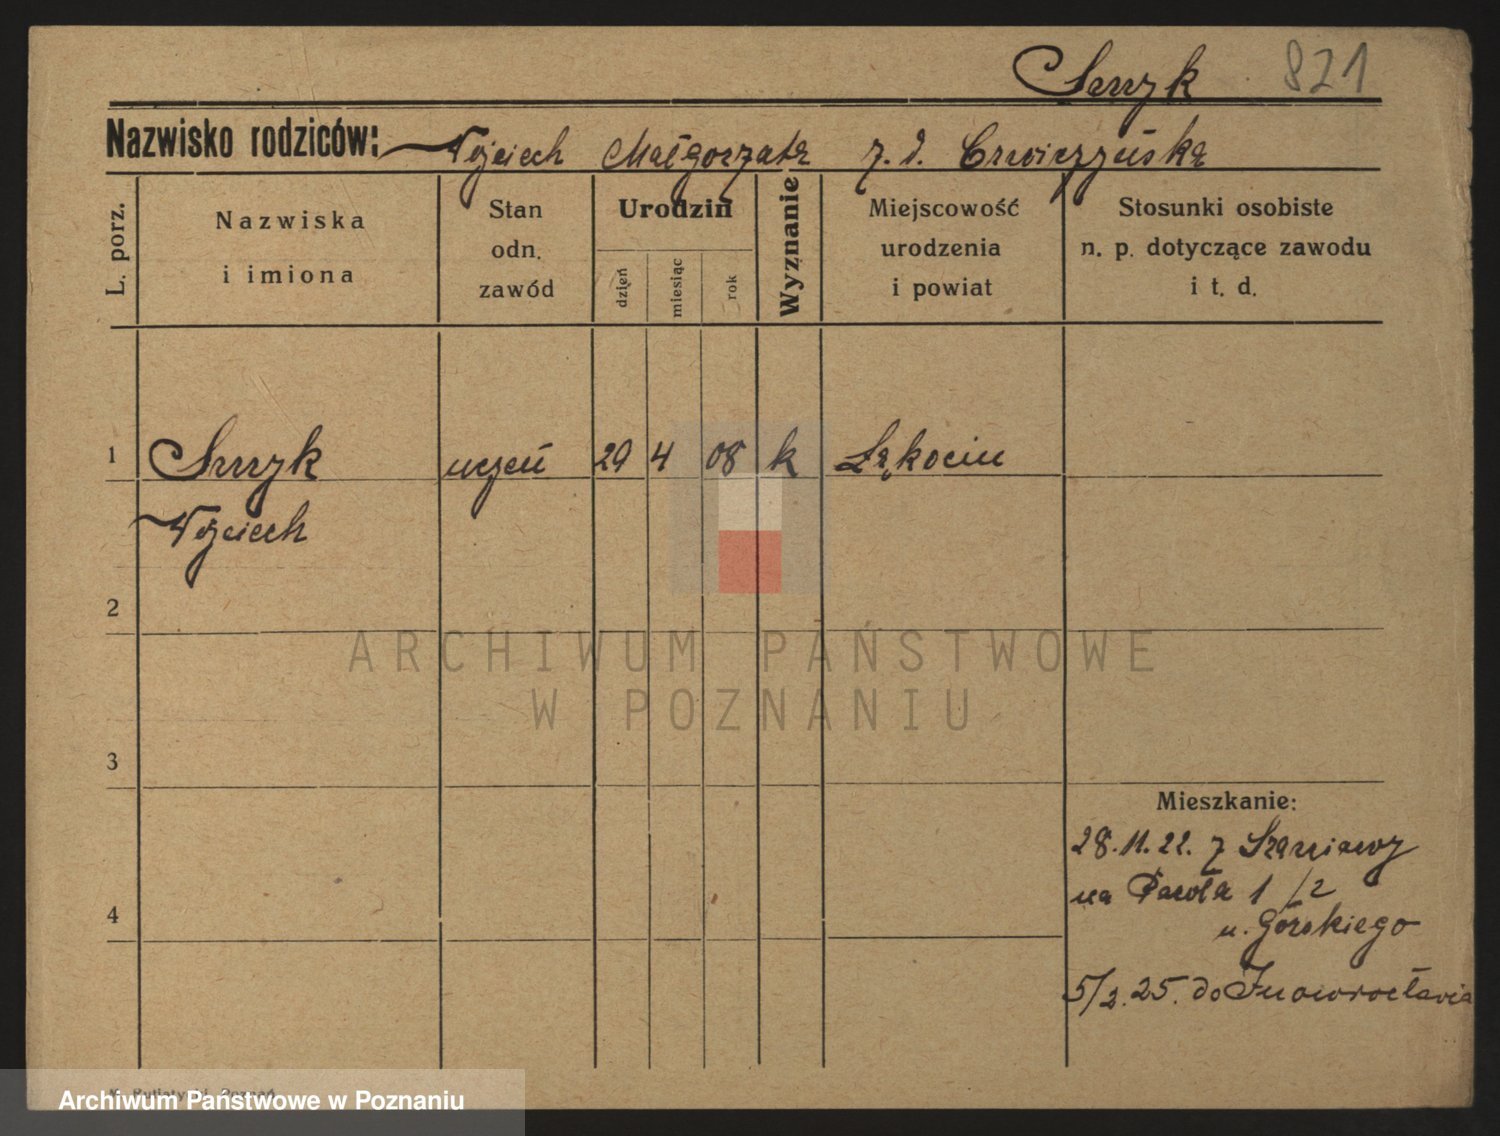 821
Nazwisko rodziców: Wojciech Małgorzata z. d.
L. porz.
Nazwiska
i imiona
Stan
odn.
zawód
Urodzin
dzień
miesiąc
rok
Wyznanie
Miejscowość
urodzenia
i powiat
Stosunki osobiste
n. p. dotyczące zawodu
i t. d.
1 uczeń 29 4 08 k Łękocin
Wojciech
2
ARCHIWUM PAŃSTWOWE
W POZNANIU
3
Mieszkanie:
28.11.22. z
na Pawła 1/2
u. Górskiego
4
5/2.25. do Inowrocławia
Archiwum Państwowe w Poznaniu